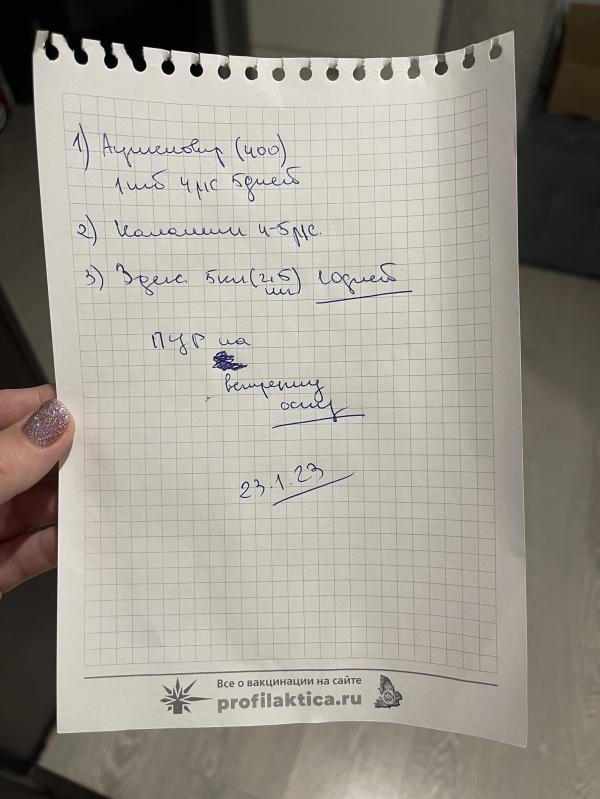 1) Ацикловир (400)
1 таб 4 р/с 5 дней
2) Каламин 4-5 р/с.
3) Эдем 5 мл (2,5 мг) 10 дней
ПЦР на
ветряную
оспу
23.1.23
Все о вакцинации на сайте
profilaktica.ru